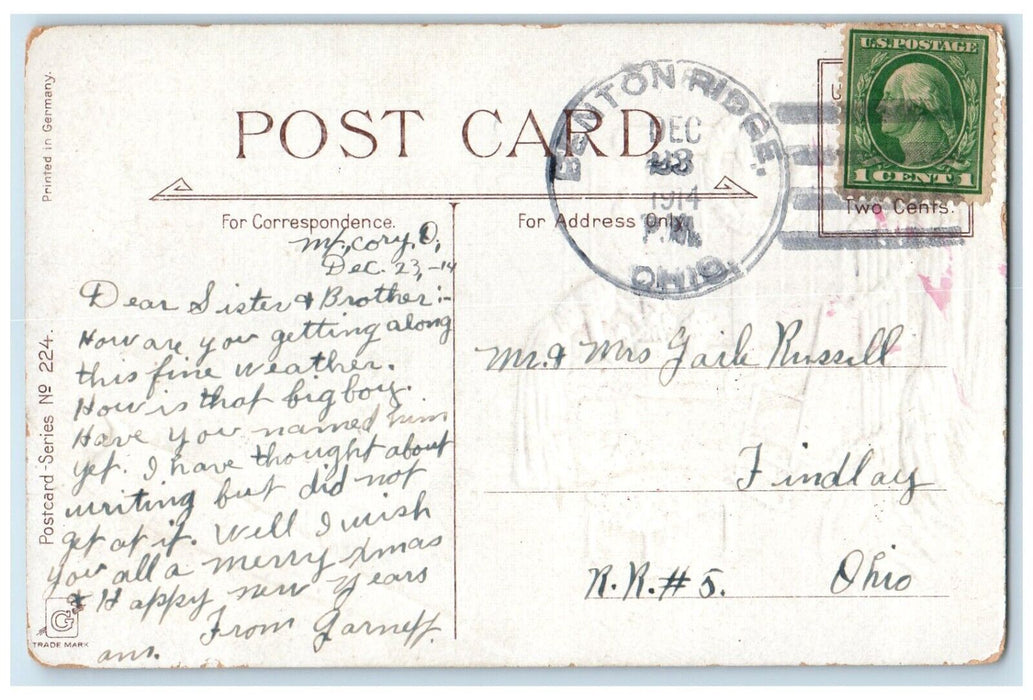 Printed in Germany.
POST CARD
BENTON RIDGE,
DEC
1914
P.M.
OHIO.
U.S. POSTAGE
1 CENT 1
Two Cents.
For Correspondence.
For Address Only.
Mt. Cory, O,
Dec. 23,-14
Dear Sister & Brother:-
How are you getting along
this fine weather.
How is that big boy.
Have you named him
yet. I have thought about
writing but did not
get at it. Well I wish
you all a merry xmas
& Happy new years
From Garnett.
ans.
Mr. & Mrs Gail Russell
Findlay
R.R.#5. Ohio
Postcard-Series No 224.
G
TRADE MARK